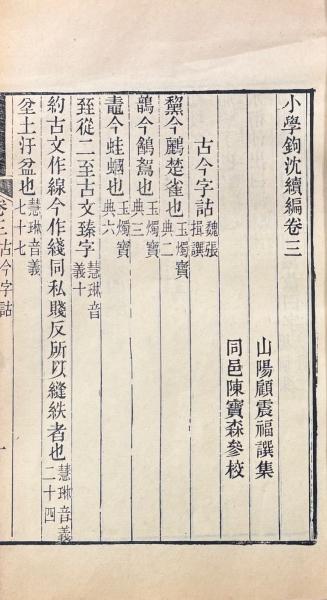 小學鉤沈續編卷三
山陽顧震福譔集
同邑陳寶森參校
古今字詁魏張揖譔
鶭今鸝楚雀也玉燭寶典二
鶕今鶴鴽也玉燭寶典三
鼃今蛙蟈也玉燭寶典六
臸從二至古文臻字慧琳音義十
約古文作線今作綫同私賤反所以縫紩者也慧琳音義二十四
坌土汙盆也慧琳音義七十七
卷三古今字詁
一